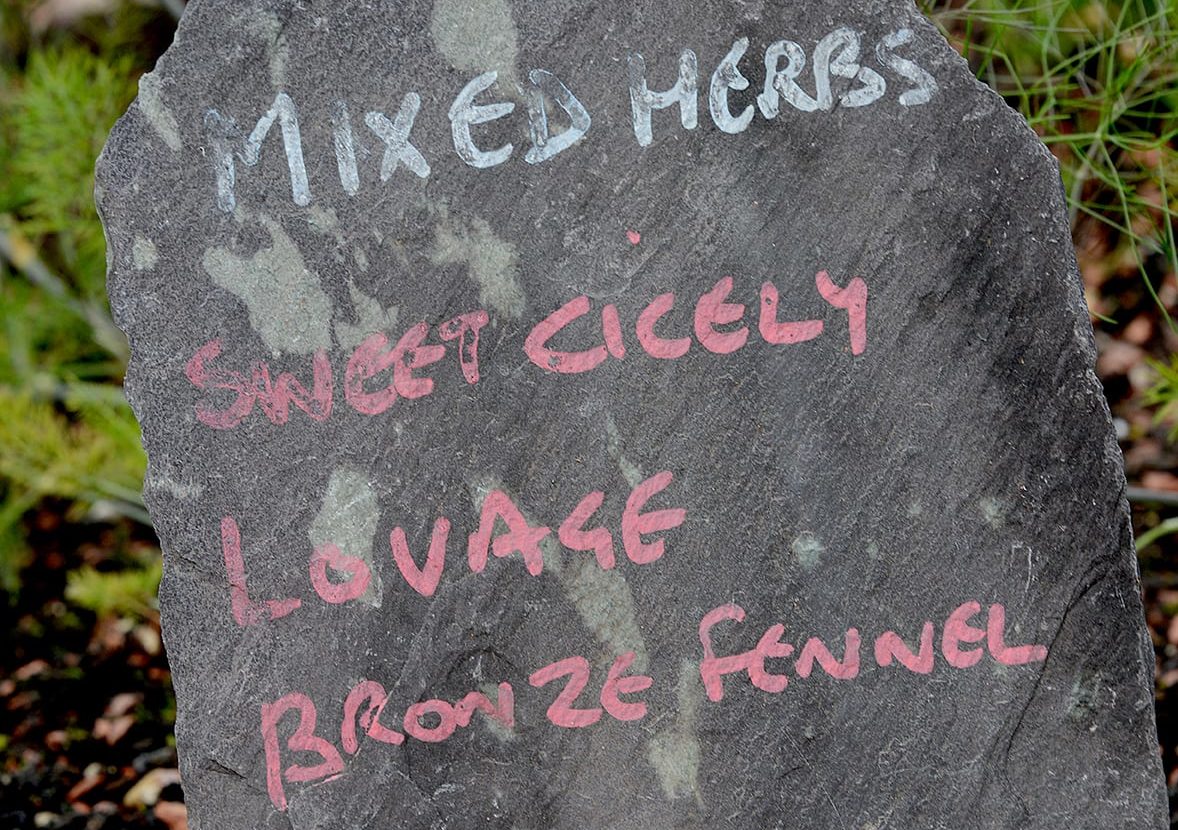 MIXED HERBS
SWEET CICELY
LOVAGE
BRONZE FENNEL